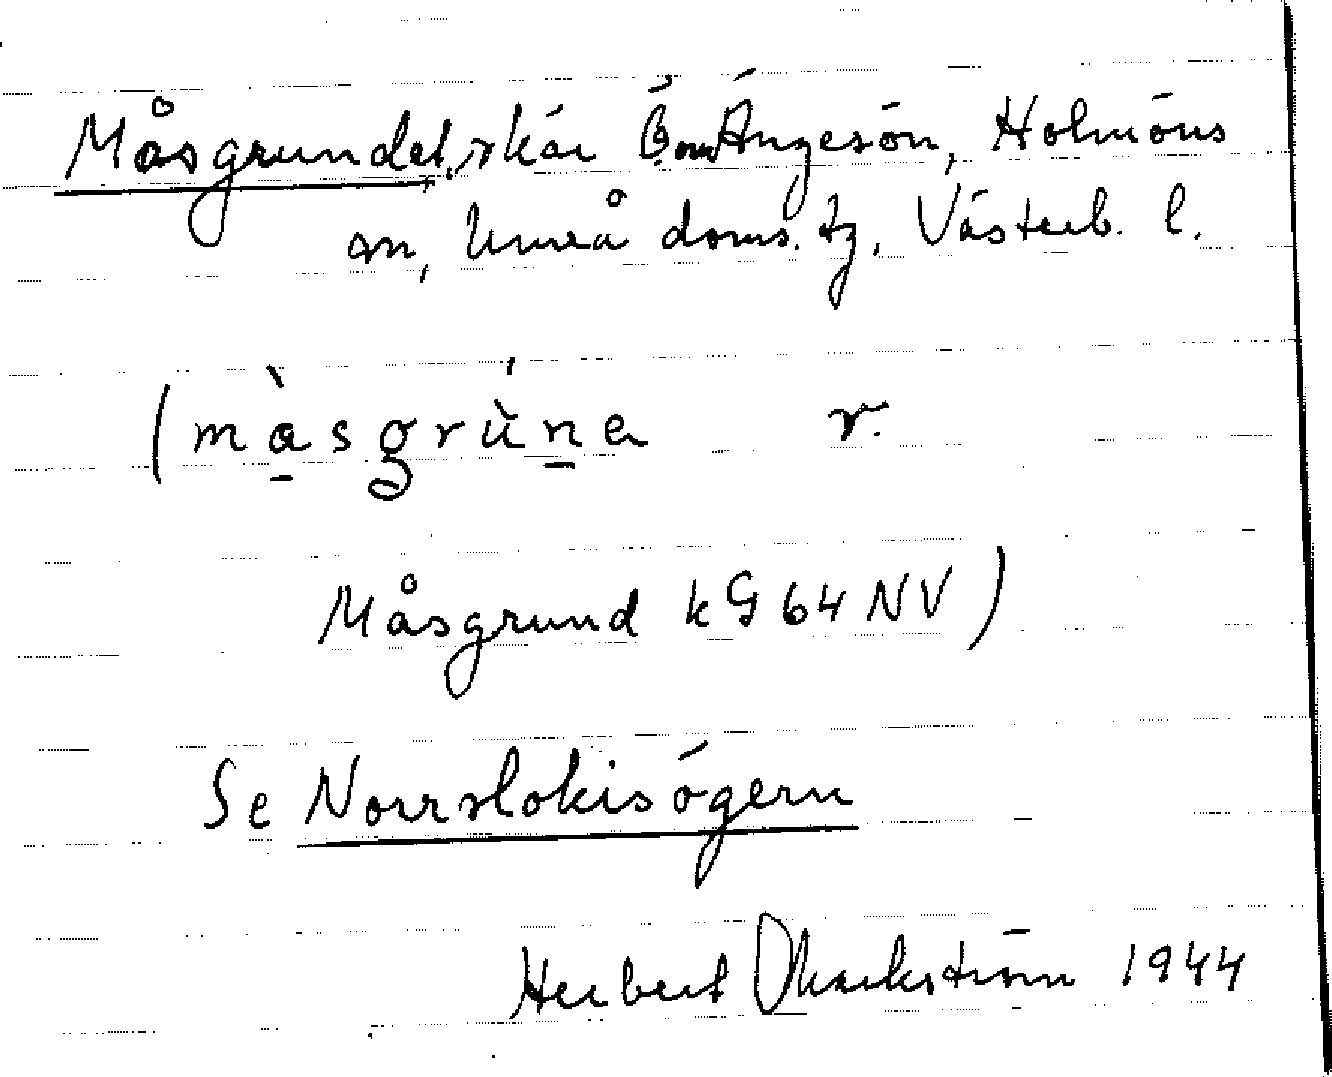 Måsgrundet, skär Ö om Ängesön, Holmöns
sn, Umeå doms. tg, Västerb. l.
(màsgrùna r.
Måsgrund kG 64 NV)
Se Norrslokisögern
Herbert Markström 1944